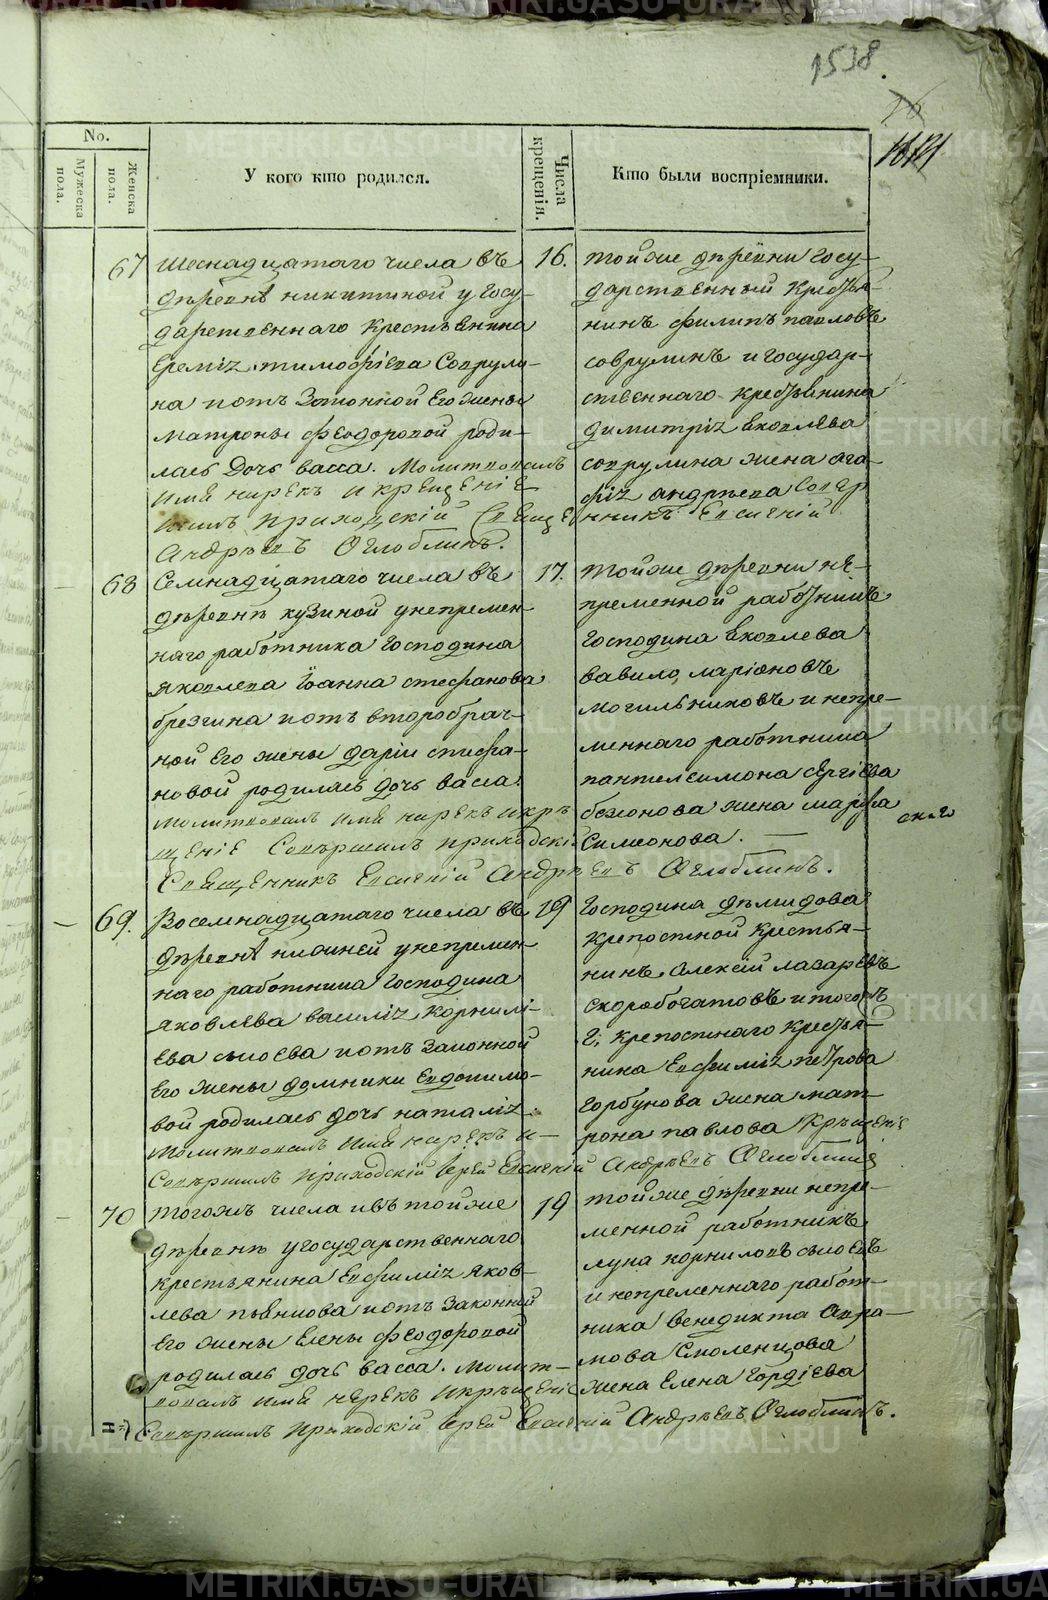 1538.
No.
Мужеска пола.
Женска пола.
У кого кто родился.
Числа крещенія.
Кто были воспріемники.
67
Шеснадцатаго числа въ
деревнѣ никитиной у Госу-
дарственнаго крестьянина
Еремія тимофѣева Соврули-
на и отъ Законной Его жены
Матроны Феодоровой роди-
лась Дочь васса. Молитвовалъ
имя нарекъ и крещеніе
приходскій Священникъ Евсигній
Андрѣевъ Оглоблинъ.
16.
той же деревни Госу-
дарственный крестья-
нинъ филипъ павловъ
соврулинъ и государ-
ственнаго крестьянина
димитрія яковлева
соврулина жена ага-
фія андрѣева
68
Семнадцатаго числа въ
деревнѣ кузиной у непремен-
наго работника Господина
яковлева Іоанна стефанова
брезгина и отъ второбрач-
ной Его жены даріи стефа-
новой родилась дочь васса.
Молитвовалъ имя нарекъ и кре-
щеніе Совершилъ приходскій
Священникъ Евсигній Андрѣевъ Оглоблинъ.
17.
той же деревни не-
пременной работникъ
Господина яковлева
вавило ларіоновъ
могильниковъ и непре-
меннаго работника
пантелеимона сергіева
жена марфа
Симеонова.
69.
Восемнадцатаго числа въ
деревнѣ нижней у непремен-
наго работника Господина
яковлева василія корнилі-
ева сысоева и отъ Законной
Его жены домники Евдокимо-
вой родилась дочь наталія.
Молитвовалъ имя нарекъ и
Совершилъ приходскій Іерей Евсигній Андрѣевъ Оглоблинъ
19
Господина демидова
крепостной крестья-
нинъ Алексій лазаревъ
скоробогатовъ и тогожъ
Г. крепостнаго крестья-
нина Евфимія петрова
горбунова жена мат-
рона павлова крещеніе
70
тогожъ числа и въ той же
деревнѣ у государственнаго
крестьянина Евфимія яков-
лева пьянкова и отъ Законной
Его жены Елены Феодоровой
родилась дочь васса. Молит-
вовалъ имя нарекъ и крещеніе
Совершилъ приходскій Іерей Евсигній Андрѣевъ Оглоблинъ.
19
той же деревни непре-
менной работникъ
лука корниловъ сысоевъ
и непременнаго работ-
ника венедикта Авра-
мова Смоленцова
жена Елена Гордіева
METRIKI.GASO-URAL.RU